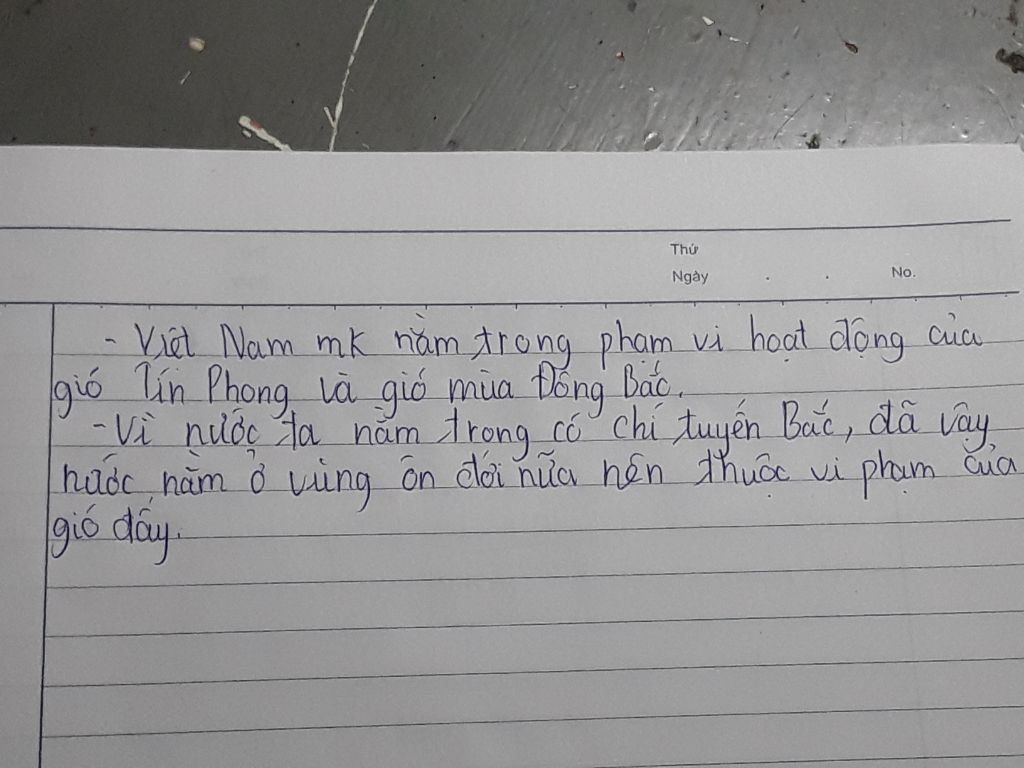 Thứ
Ngày . . No.
- Việt Nam mk nằm trong phạm vi hoạt động của
gió Tín Phong và gió mùa Đông Bắc.
- Vì nước ta nằm trong có chí tuyến Bắc, đã vậy
nước nằm ở vùng ôn đới nữa nên thuộc vi phạm của
gió đấy.